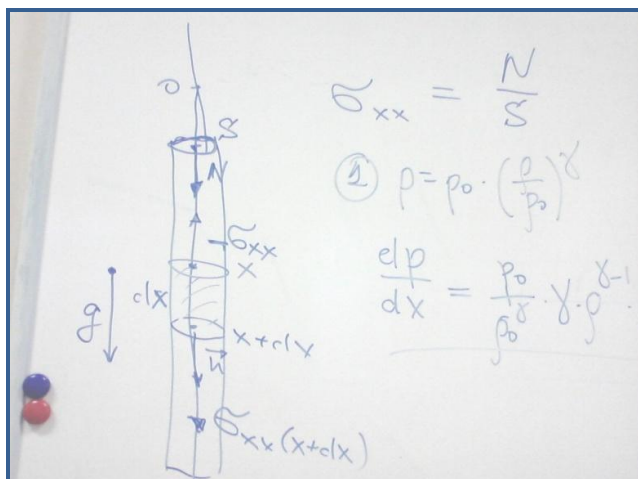 0
S
N
σ_xx
x
dx
g
x+dx
n
σ_xx(x+dx)
σ_xx = N/S
① p = p₀ · (ρ/ρ₀)^γ
dp/dx = p₀/ρ₀^γ · γ · ρ^(γ-1) ·